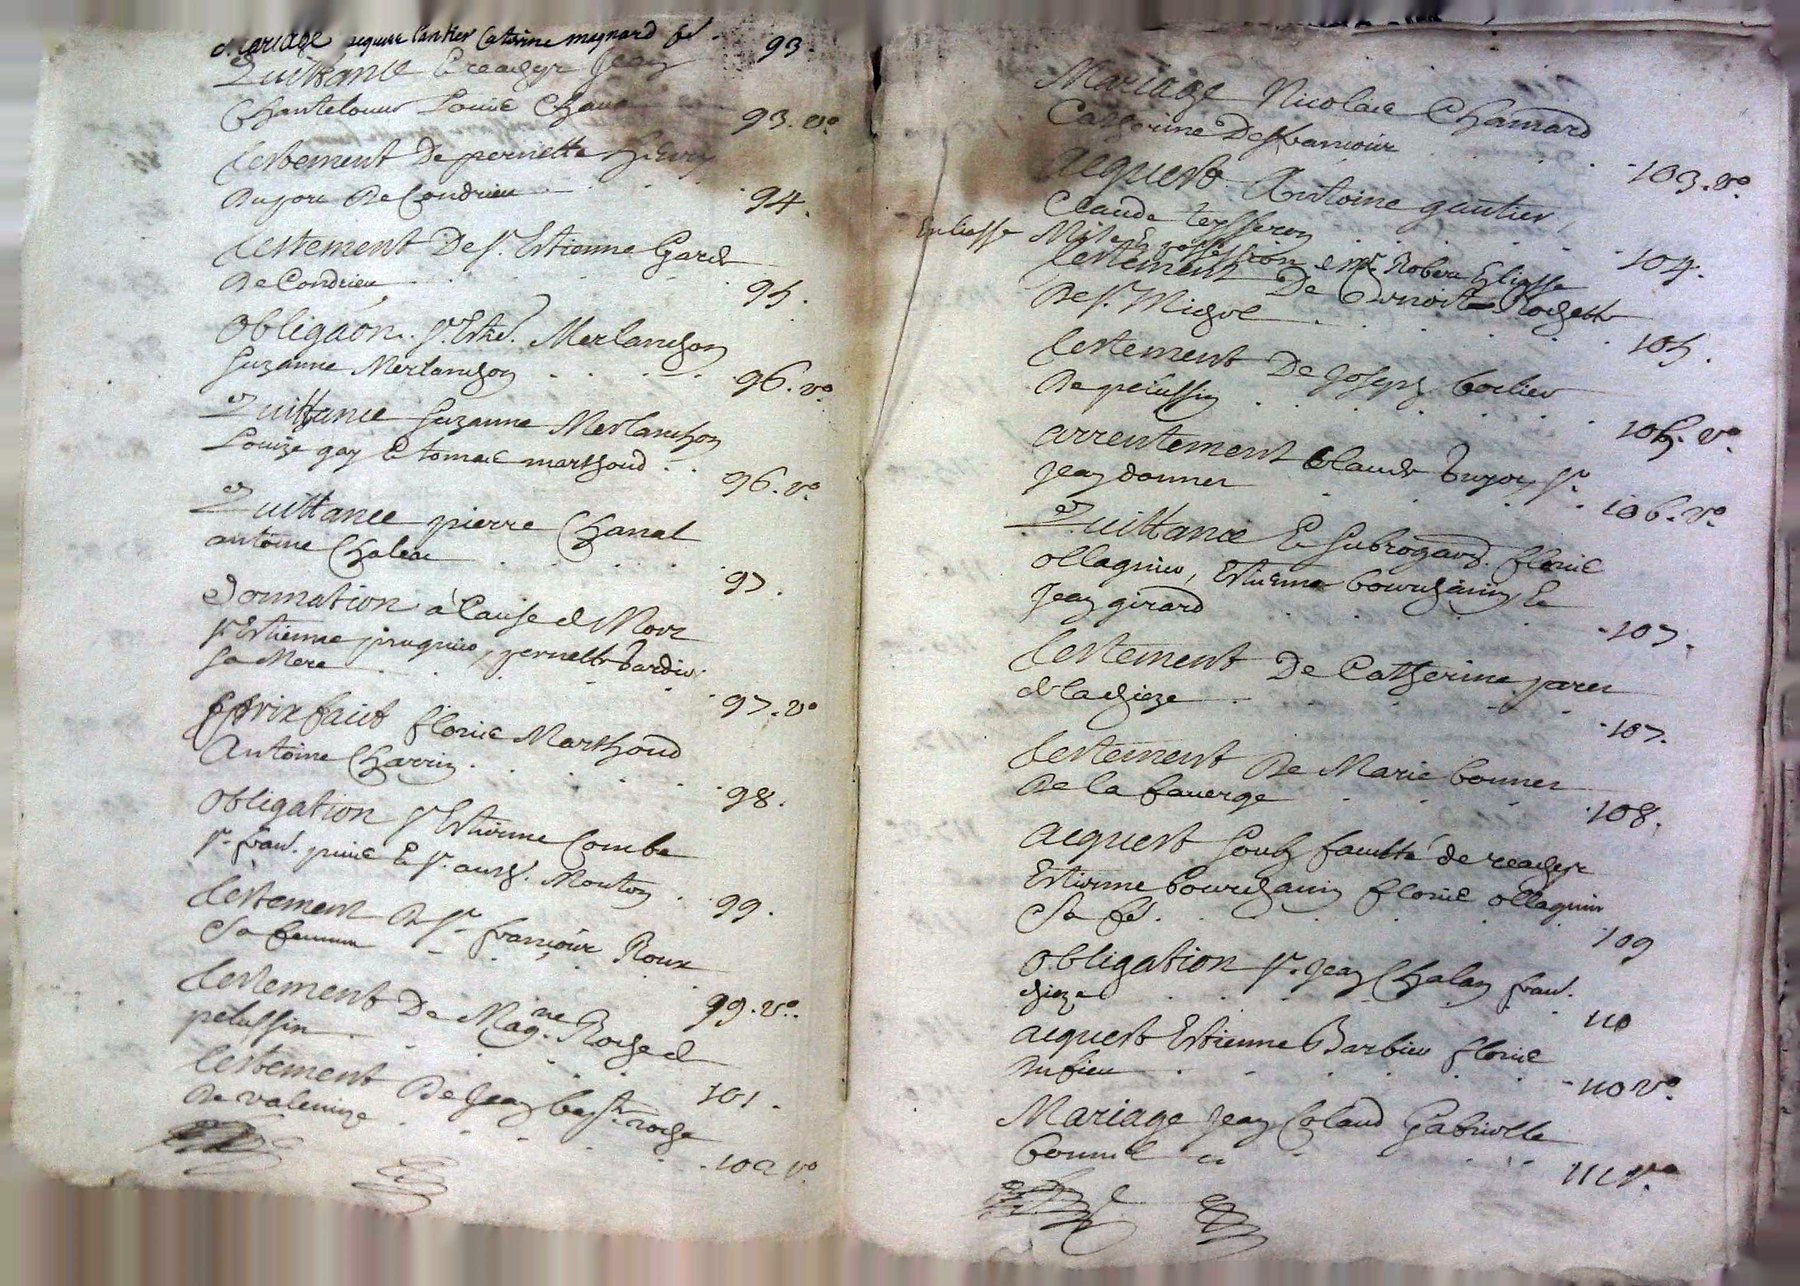 Mariage Jeque Cantier Caterine maynard fe. 93.
Quittance & reachept Jean
Chantelouue Louise Chaua 93. vo.
testement De pernette
Du port De Condrieu 94.
testement De sr. Estienne Garde
De Condrieu 95.
Obligaon. sr. Esne. Merlanchon
Suzanne Merlanchon 96. vo.
Quittance Suzanne Merlanchon
Louize gay & tomae marthoud 96. vo.
Quittance pierre Chanal
antoine Chaleac 97.
Donnation à Cause de Mort
sr. Estienne prugnieu, pernette Tardiu
Sa Mere 97. vo
prixfaict florie Marthoud
Antoine Charrin 98.
Obligation sr. Estienne Combe
sr. fran. & sr. anth. Mouton 99.
testement De sr. francois Roux
Sa femme 99. vo.
testement De Magne. Roche de
pelussin 101.
testement De Jean bapt. roche
De valenize 102 vo.
Mariage Nicolas Chamard
Catherine Desfrancois 103. vo
acquest Antoine gautier
Claude teysseron 104.
En liasse Mise En possession de Mr. Robera En liasse
testement De Benoite Rochette
De sr. Michel 105.
testement De Joseph borlier
De pelussin 105. vo
arrentement Claude Dupuy sr.
Jean donner 106. vo
Quittance & Subrogaon. florie
ollagnier, Estienne bourchanin &
Jean girard 107.
testement De Catherine parer
de la chieze 107.
testement De Marie bonner
De la fauerge 108.
acquest Soubz faculté de reachept
Estienne bourchanin florie ollagnier
Sa fe. 109
Obligation sr. Jean Chalan fran.
chieze 110
acquest Estienne Barbier florie
Dufieu 110 vo.
Mariage Jean Coland Gabrielle
bonnie 111 vo.